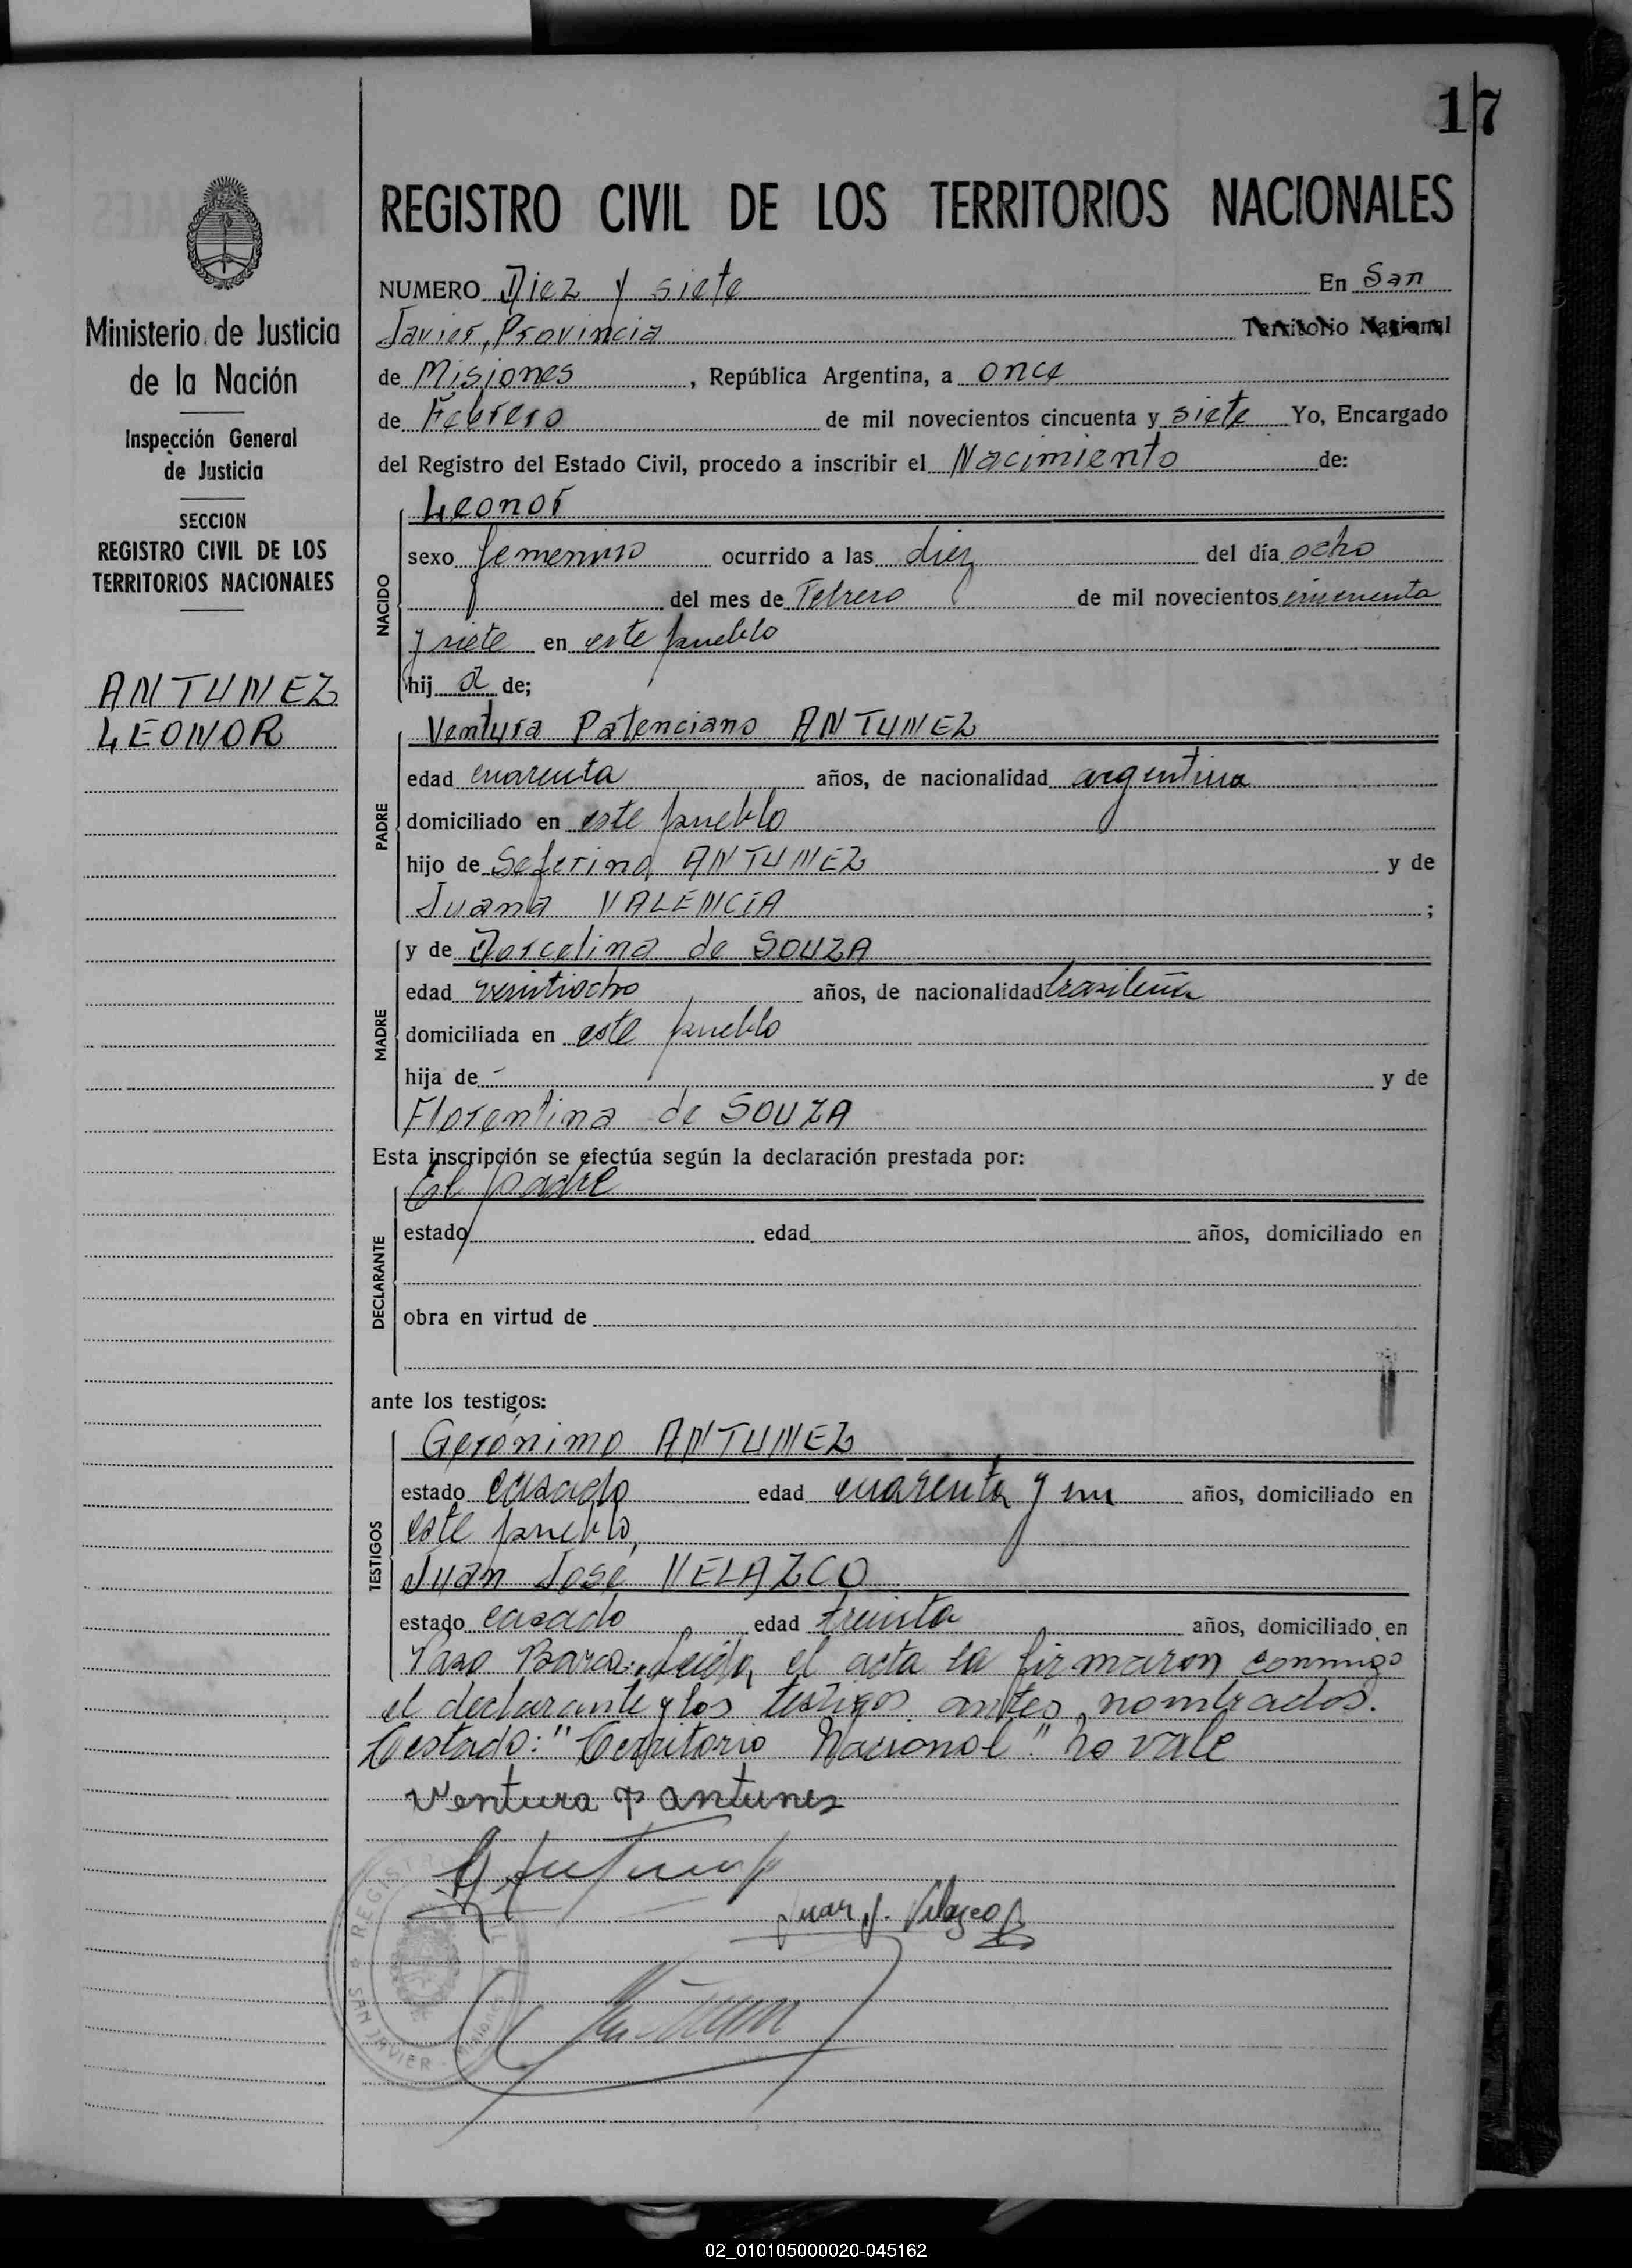 17
REGISTRO CIVIL DE LOS TERRITORIOS NACIONALES
Ministerio de Justicia
de la Nación
Inspección General
de Justicia
SECCION
REGISTRO CIVIL DE LOS
TERRITORIOS NACIONALES
ANTUNEZ
LEONOR
NUMERO Diez y siete En San
Javier, Provincia Territorio Nacional
de Misiones, República Argentina, a once
de Febrero de mil novecientos cincuenta y siete Yo, Encargado
del Registro del Estado Civil, procedo a inscribir el Nacimiento de:
NACIDO
Leonor
sexo femenino ocurrido a las diez del día ocho
del mes de Febrero de mil novecientos cincuenta
y siete en este pueblo
hij a de;
PADRE
Ventura Patenciano ANTUNEZ
edad cuarenta años, de nacionalidad argentina
domiciliado en este pueblo
hijo de Seferino ANTUNEZ y de
Juana VALENCIA ;
MADRE
y de Dorcelina de SOUZA
edad veintiocho años, de nacionalidad brasileña
domiciliada en este pueblo
hija de - y de
Florentina de SOUZA
Esta inscripción se efectúa según la declaración prestada por:
DECLARANTE
El padre
estado edad años, domiciliado en
obra en virtud de
ante los testigos:
TESTIGOS
Gerónimo ANTUNEZ
estado casado edad cuarenta y un años, domiciliado en
este pueblo,
Juan José VELAZCO
estado casado edad treinta años, domiciliado en
Paso Barca. Leida el acta la firmaron conmigo
el declarante y los testigos antes nombrados.
Testado: "Territorio Nacional" no vale
Ventura P Antunez
Juan J. Velazco
REGISTRO
SAN JAVIER - Misiones
02_010105000020-045162